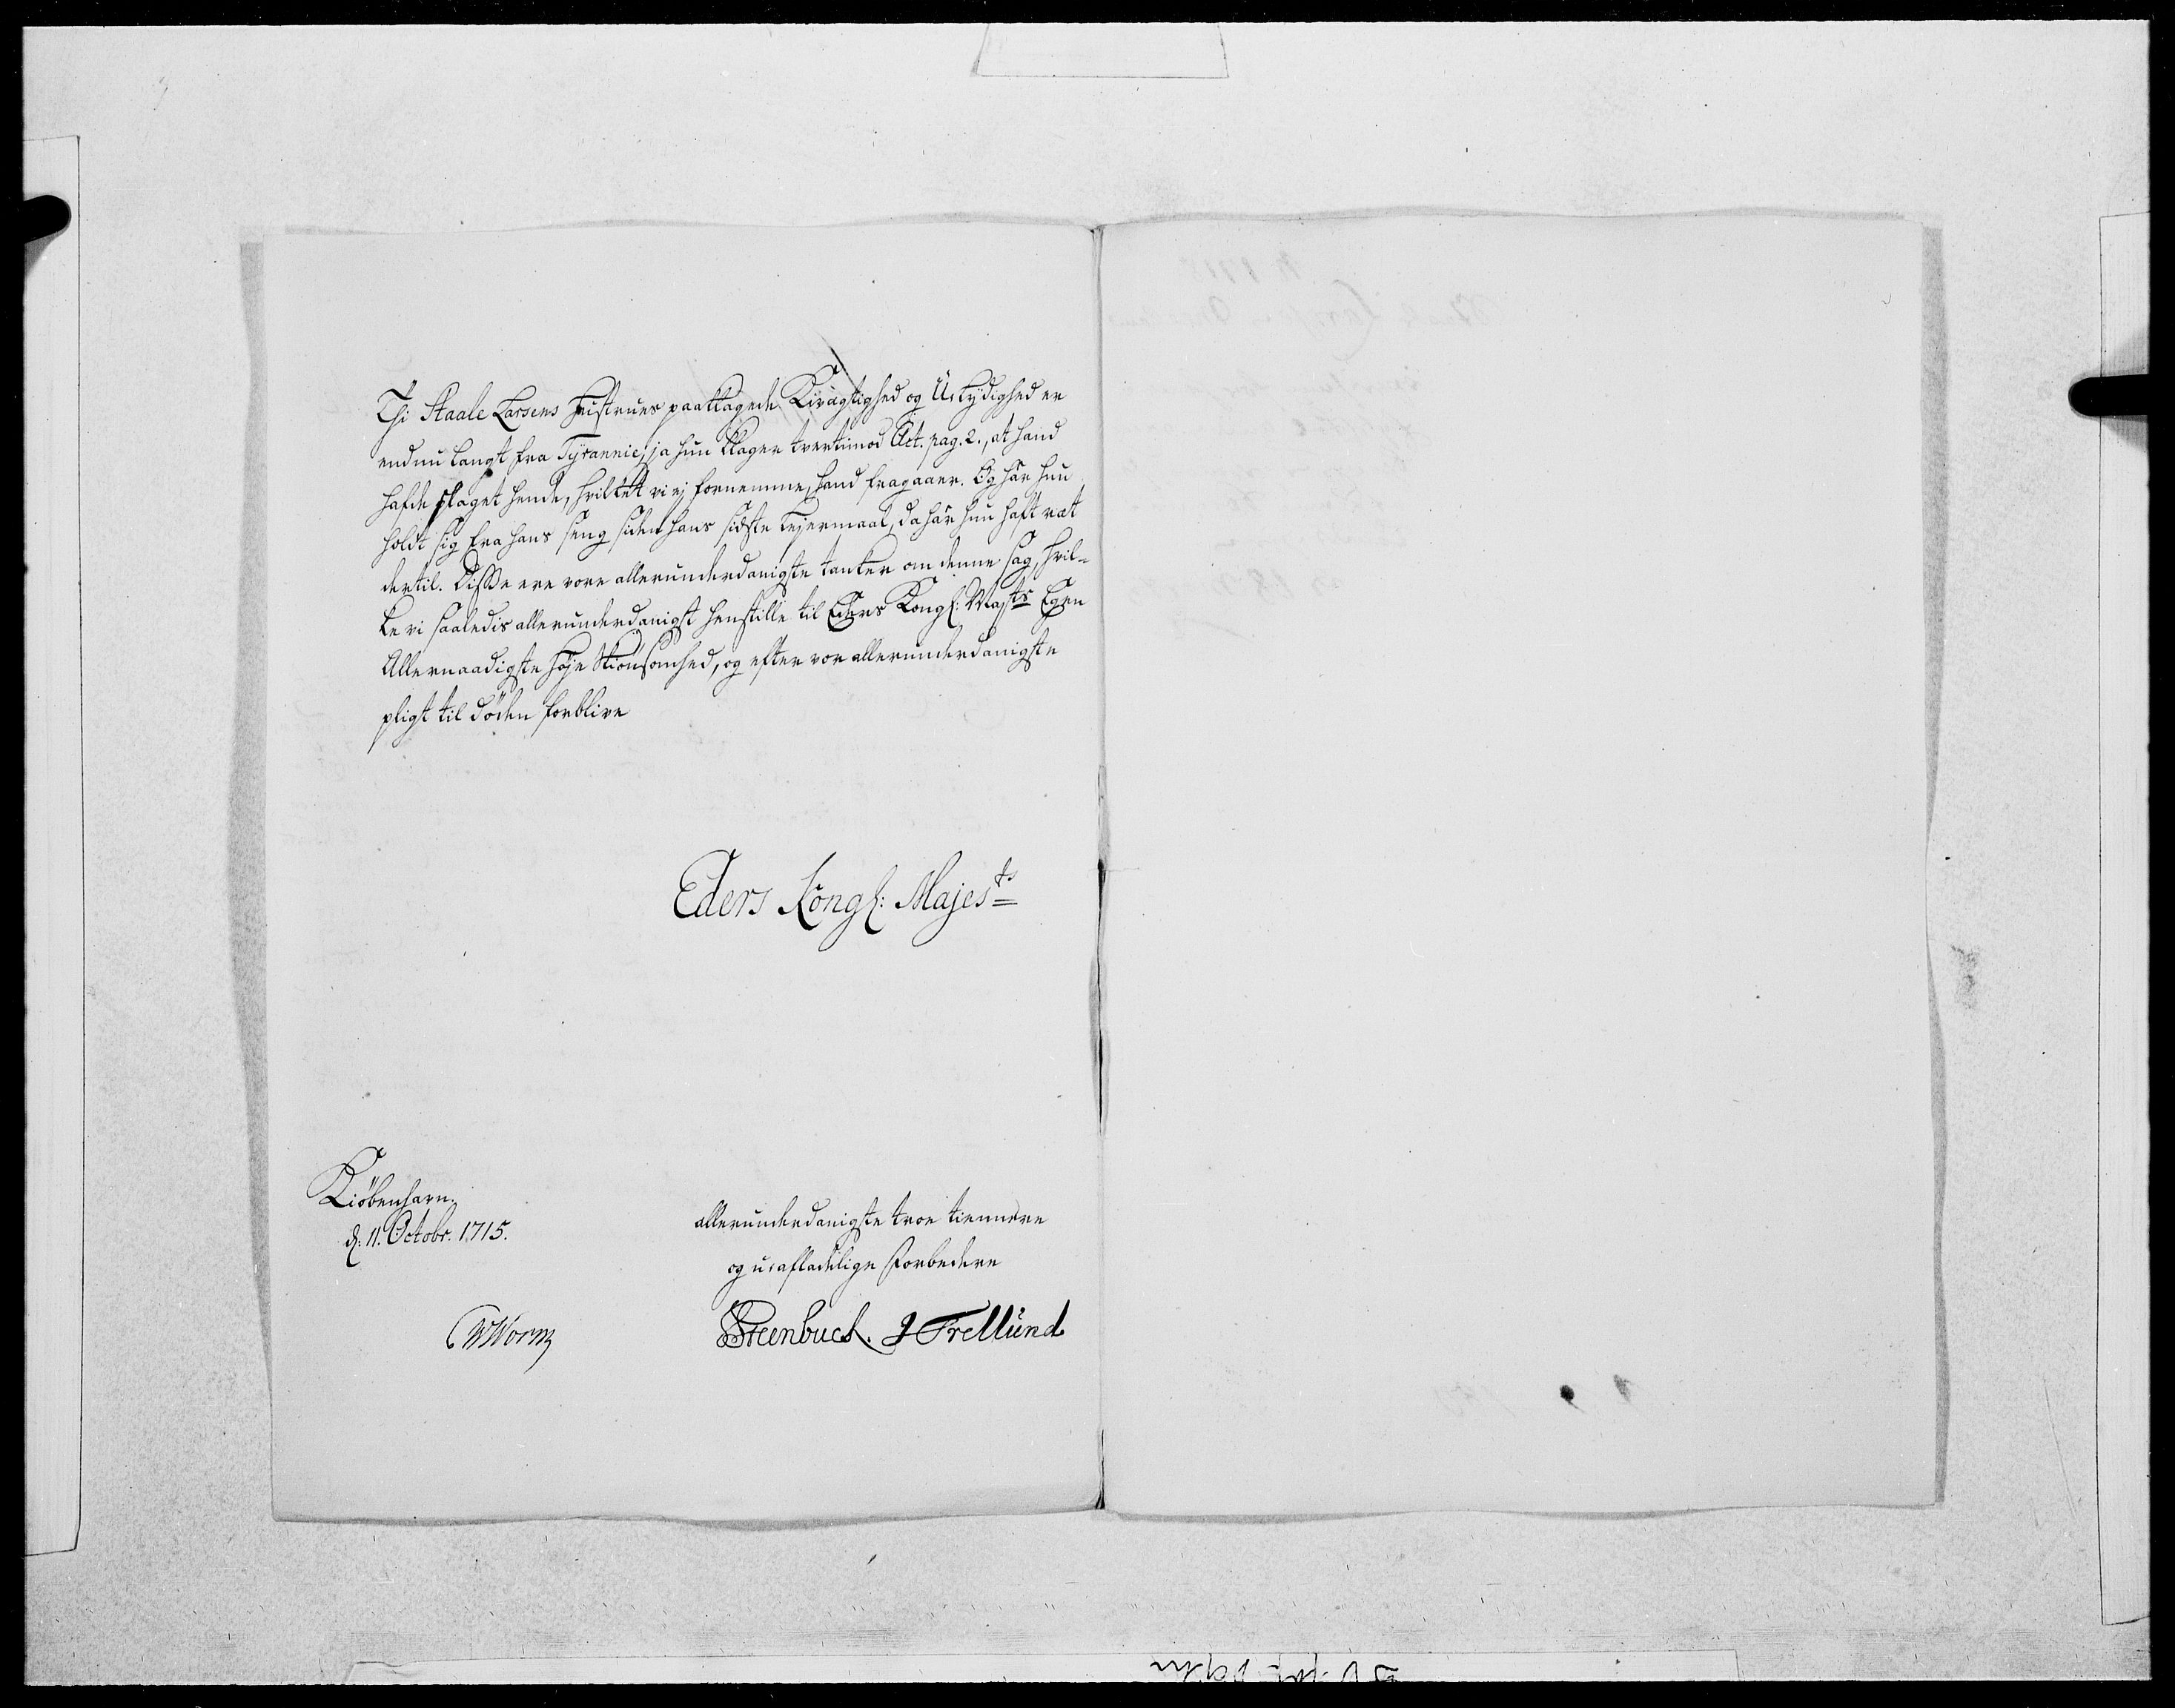 Thi Staale Larsens Hustrues paaklagede Kivagtighed og U-lydighed er
endnu langt fra Tyrannie; ja hun klager tvertimod Act. pag. 2., at hand
hafde slaget hende, hvilket vi ej fornemme, hand fragaaer. Og har hun
holdt sig fra hans seng siden hans sidste Lejermaal, da har hun haft ret
dertil. Disse ere vore allerunderdanigste tanker om denne sag, hvil-
ke vi saaledis allerunderdanigst henstille til Eders Kongl: Majts Egen
Allernaadigste høje Skiønsomhed, og efter vor allerunderdanigste
pligt til døden forblive
Eders Kongl: Majests
Kiøbenhavn.
d: 11. Octobr. 1715.
allerunderdanigste troe tiennere
og u-afladelige forbedere
CWWorm
SSteenbuch. J Trellund